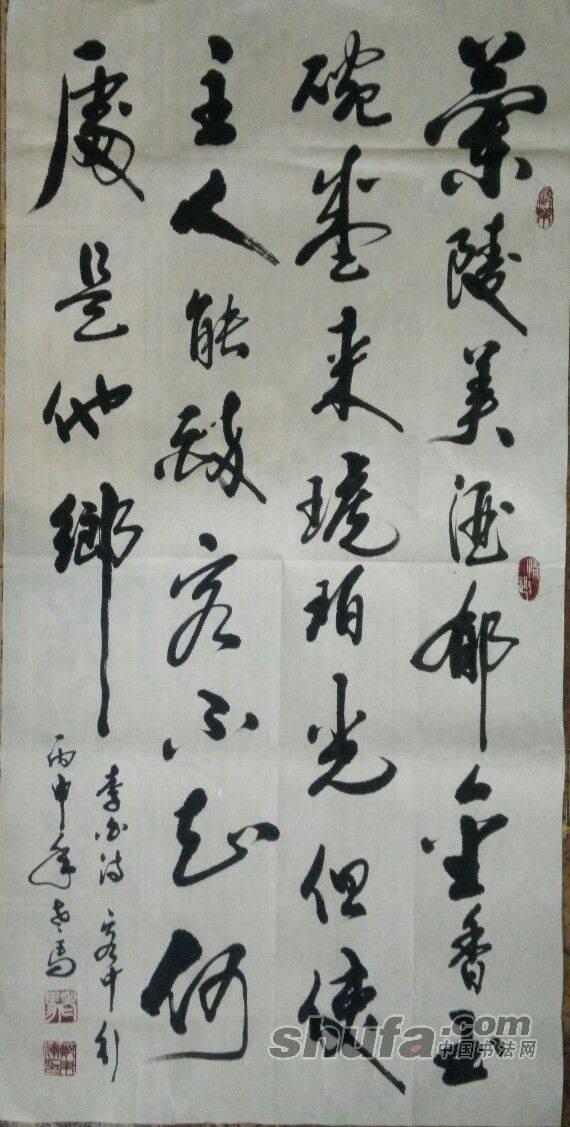 蘭陵美酒郁金香玉
碗盛来琥珀光但使
主人能醉客不知何
處是他鄉
李白詩 客中行
丙申年老馬
shufa.com
中国书法网